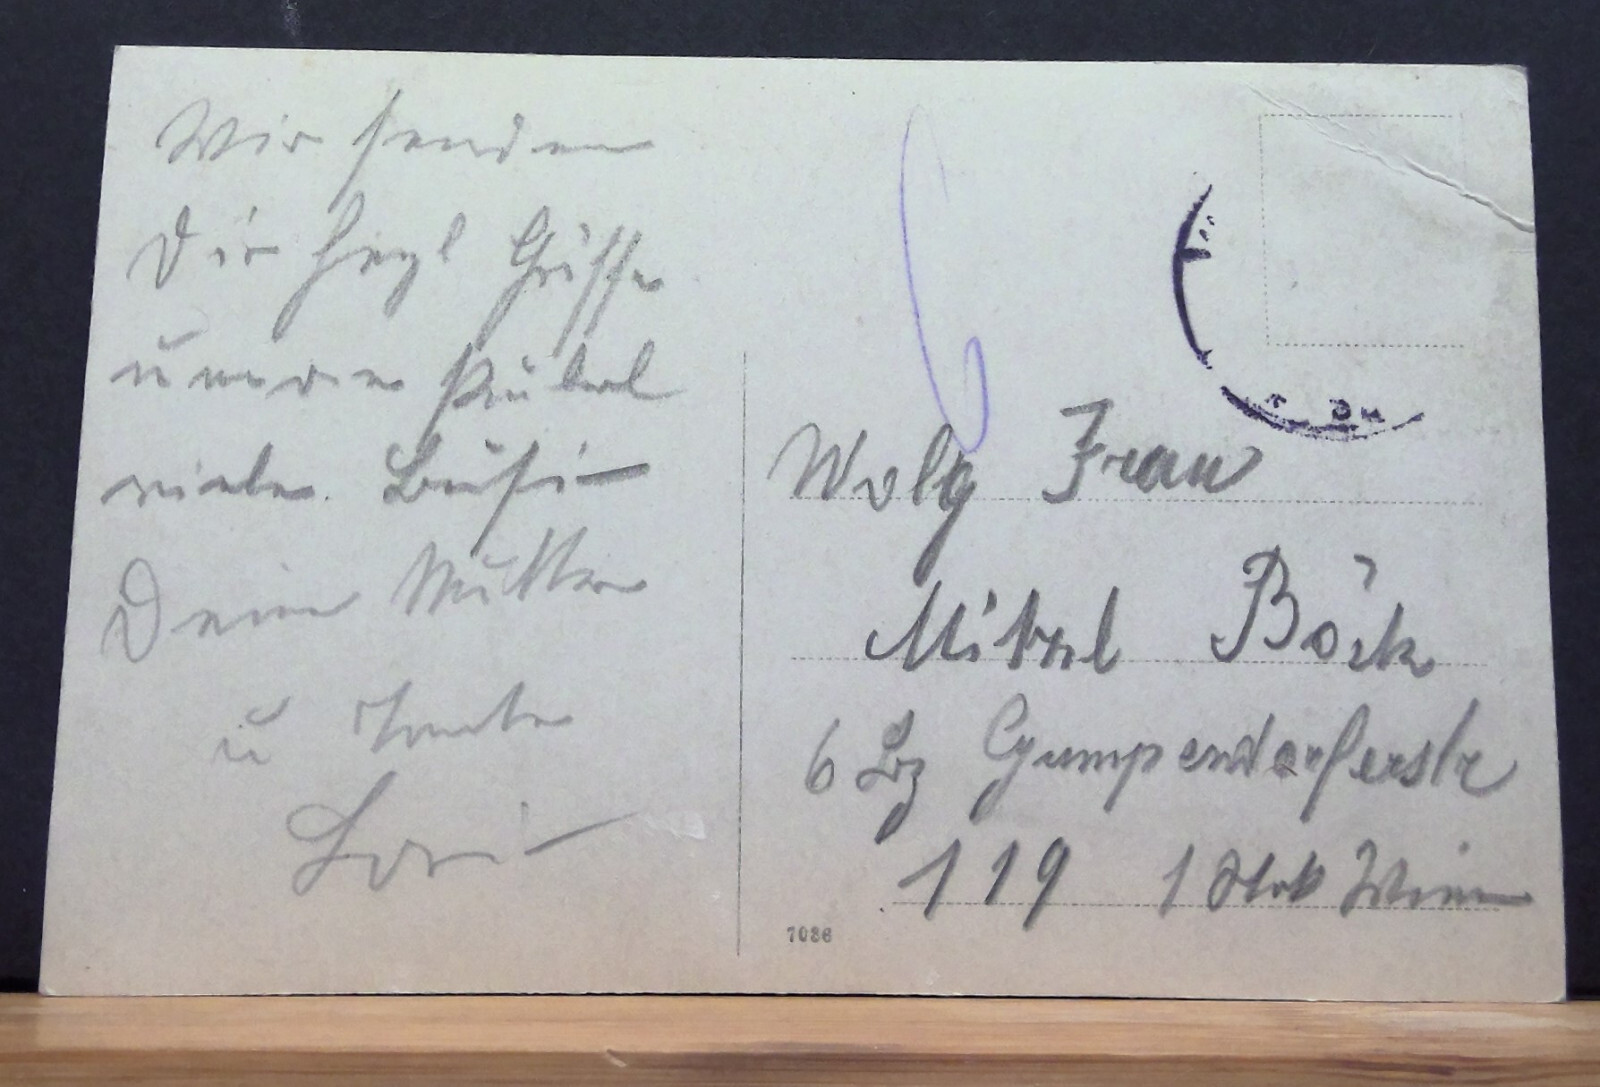 Wir senden
Dir herzl Grüsse
u
viele Bussi
Deine Mutter
u Tante
Lori
Wolg Frau
Mitzel Böck
6 Bz Gumpendorferstr
119 1 Stok Wien
7086